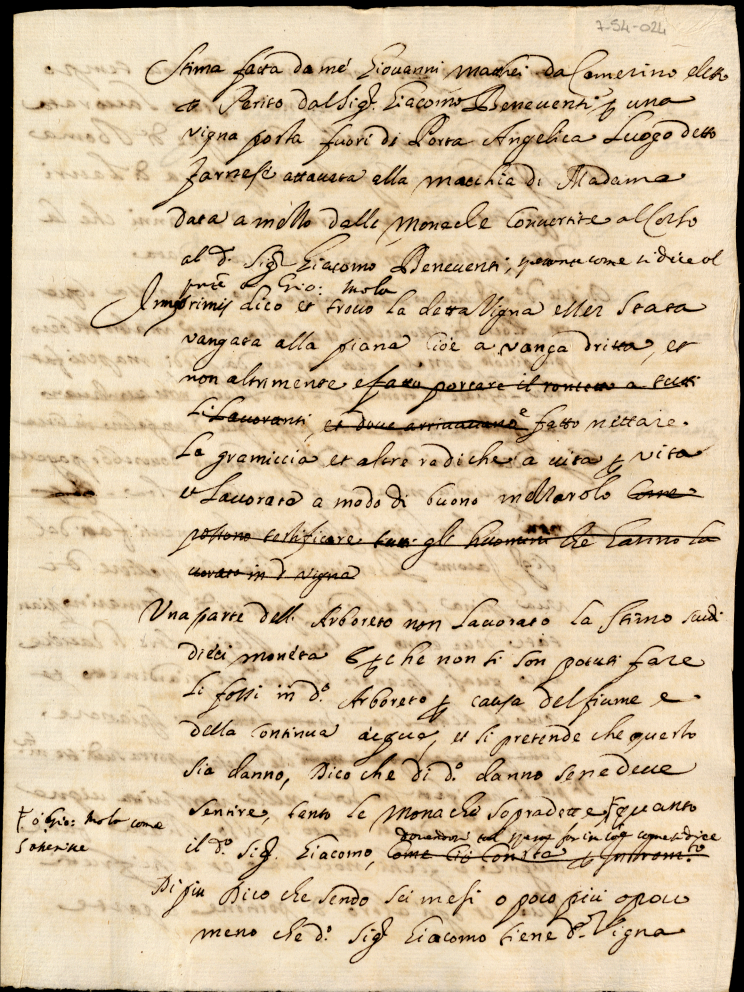 7-54-024
Stima fatta da me Giovanni Mattei da Camerino eletto
Perito dal Sig.r Giacomo Beneventi una
vigna posta fuori di Porta Angelica Luogo detto
Farnese attaccata alla macchia di Madama
data a mezzo dalle Monache Convertite al Corso
al d.o Sig.r Giacomo Beneventi, come si dice al
Gio: Mola
Imprimis dico et trovo la detta Vigna esser stata
vangata alla piana cioè a vanga dritta, et
non altrimente e fatto portare il a tutti
Li Lavoranti, et dove arrivavano è fatto nettare
La gramiccia et altre radiche a vita p vita
et Lavorata a modo di buono mezzarolo come
possono testificare tutti gli huomini che hanno la
vorato in d. vigna
Una parte dell Arboreto non Lavorato la Stimo scudi
dieci moneta p che non si son potuti fare
Li fossi in d.o Arboreto p causa del fiume e
della continua acqua, et si pretende che questo
sia danno, Dico che di d.o danno sene deve
sentire, tanto le Monache sopradette, quanto
ò Gio: Mola come
il d.o Sig.r Giacomo, come ciò consta p
Di piu Dico che sendo sei mesi o poco più o poco
meno che d.o Sig.r Giacomo tiene d.a Vigna